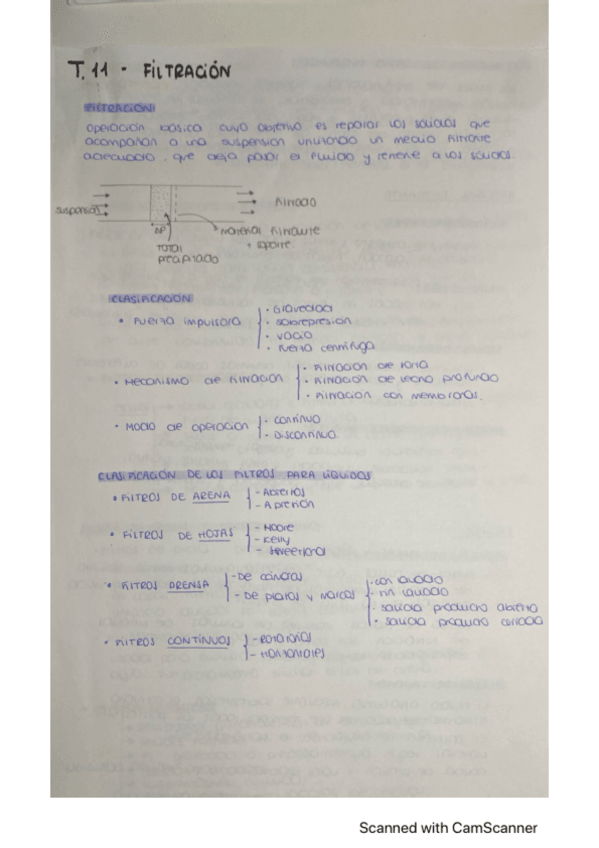 T. 11 - FILTRACIÓN
FILTRACIÓN
Operación básica cuyo objetivo es separar los sólidos que
acompañan a una suspensión utilizando un medio filtrante
adecuado, que deja pasar el fluido y retiene a los sólidos.
suspensión
Filtrado
ΔP
material filtrante
+ soporte
TORTA
precipitado
CLASIFICACIÓN
• Fuerza impulsora
· Gravedad
· sobrepresión
· vacío
· Fuerza centrífuga
• Mecanismo de filtración
· Filtración de torta
· Filtración de lecho profundo
· Filtración con membranas.
• Modo de operación
· continuo
· Discontinuo
CLASIFICACIÓN DE LOS FILTROS PARA LÍQUIDOS
• FILTROS DE ARENA
- Abiertos
- A presión
• FILTROS DE HOJAS
- Moore
- Kelly
- Sweetland
• FILTROS PRENSA
- De cámaras
- De platos y marcos
· con lavado
· sin lavado
· salida producto abierta
· salida producto cerrada
• FILTROS CONTÍNUOS
- Rotatorios
- Horizontales
Scanned with CamScanner